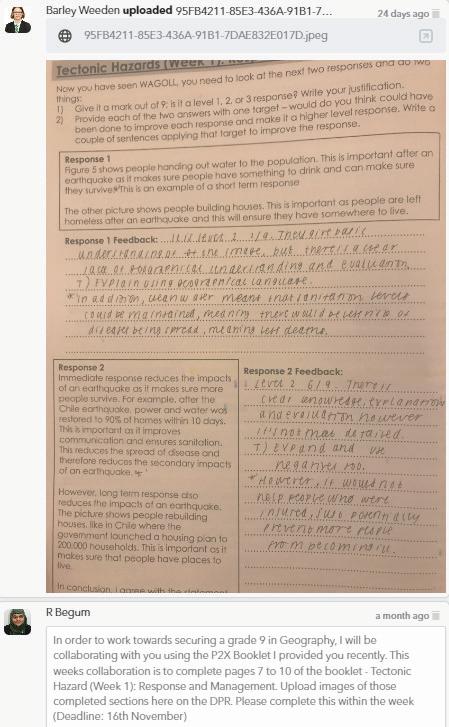 Barley Weeden uploaded 95FB4211-85E3-436A-91B1-7...
24 days ago
95FB4211-85E3-436A-91B1-7DAE832E017D.jpeg
Tectonic Hazards (Week 1):
Now you have seen WAGOLL, you need to look at the next two responses and do two
things:
1) Give it a mark out of 9: is it a level 1, 2, or 3 response? Write your justification.
2) Provide each of the two answers with one target – would do you think could have
been done to improve each response and make it a higher level response. Write a
couple of sentences applying that target to improve the response.
Response 1
Figure 5 shows people handing out water to the population. This is important after an
earthquake as it makes sure people have something to drink and can make sure
they survive. This is an example of a short term response
The other picture shows people building houses. This is important as people are left
homeless after an earthquake and this will ensure they have somewhere to live.
Response 1 Feedback: level 2 /9. They give basic
understanding of the image, but there is a clear
lack of geographical understanding and evaluation.
T) Explain using geographical language.
* In addition, clean water means that sanitation levels
could be maintained, meaning there would be less risk of
disease being spread, meaning less deaths.
Response 2
Immediate response reduces the impacts
of an earthquake as it makes sure more
people survive. For example, after the
Chile earthquake, power and water was
restored to 90% of homes within 10 days.
This is important as it improves
communication and ensures sanitation.
This reduces the spread of disease and
therefore reduces the secondary impacts
of an earthquake. *
However, long term response also
reduces the impacts of an earthquake.
The picture shows people rebuilding
houses, like in Chile where the
government launched a housing plan to
200,000 households. This is important as it
makes sure that people have places to
live.
In conclusion, I agree with the statement
Response 2 Feedback:
Level 2 6/9. There is
clear knowledge, explanation
and evaluation however
it's not that detailed.
T) Expand and use
negatives too.
* However, it would not
help people who were
injured, just potentially
prevent more people
from becoming
R Begum
a month ago
In order to work towards securing a grade 9 in Geography, I will be
collaborating with you using the P2X Booklet I provided you recently. This
weeks collaboration is to complete pages 7 to 10 of the booklet - Tectonic
Hazard (Week 1): Response and Management. Upload images of those
completed sections here on the DPR. Please complete this within the week
(Deadline: 16th November)